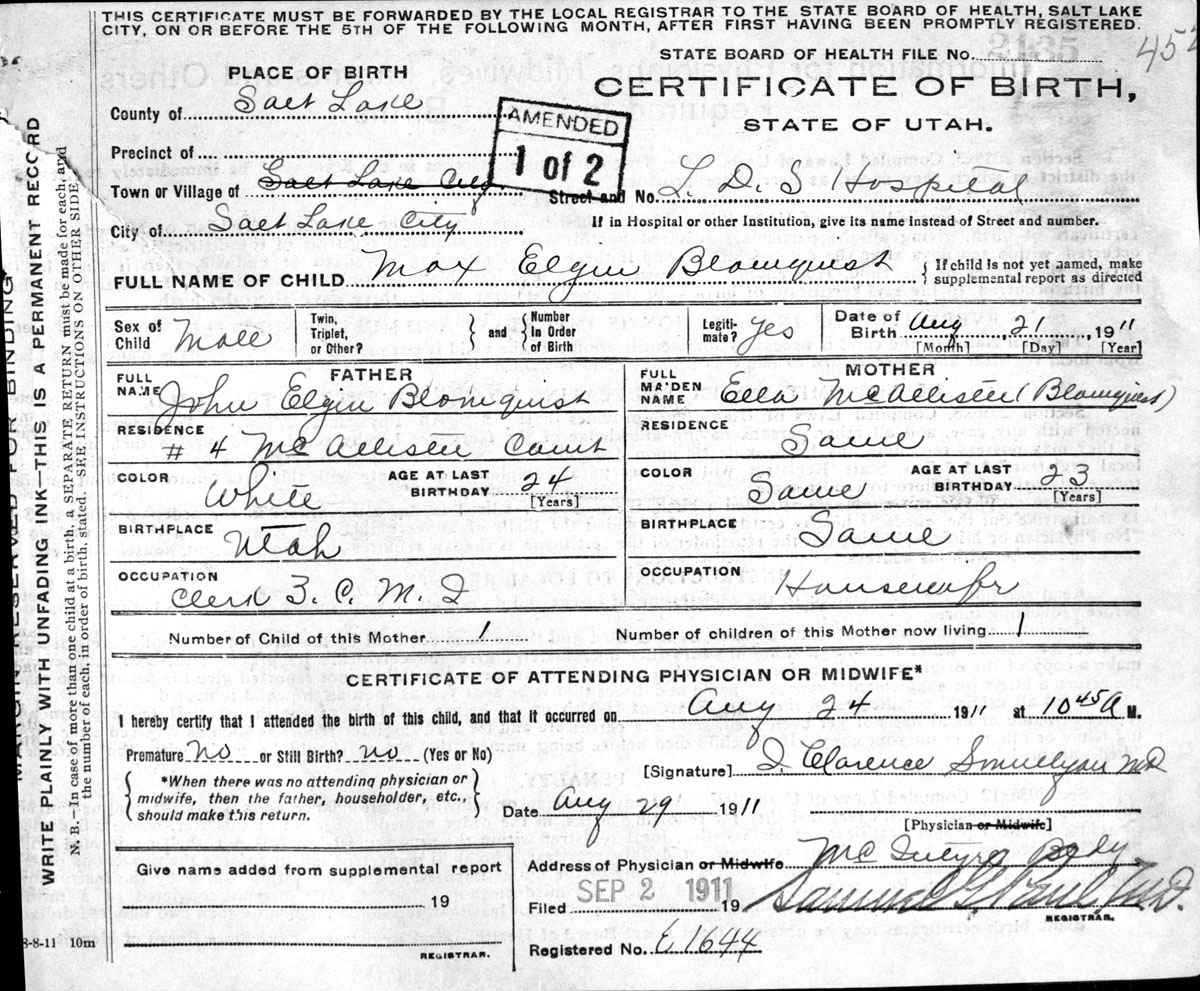 THIS CERTIFICATE MUST BE FORWARDED BY THE LOCAL REGISTRAR TO THE STATE BOARD OF HEALTH, SALT LAKE
CITY, ON OR BEFORE THE 5TH OF THE FOLLOWING MONTH, AFTER FIRST HAVING BEEN PROMPTLY REGISTERED.
STATE BOARD OF HEALTH FILE No. 2135
PLACE OF BIRTH
CERTIFICATE OF BIRTH,
STATE OF UTAH.
County of Salt Lake
AMENDED
1 of 2
Precinct of
Town or Village of Salt Lake City
Street and No. L. D. S Hospital
City of Salt Lake City
If in Hospital or other Institution, give its name instead of Street and number.
FULL NAME OF CHILD Max Elgin Blomquist
If child is not yet named, make
supplemental report as directed
Sex of Child Male
Twin, Triplet, or Other?
and
Number In Order of Birth
Legiti-mate? Yes
Date of Birth Aug 21, 1911
[Month] [Day] [Year]
FATHER
FULL NAME John Elgin Blomquist
RESIDENCE # 4 McAllister Court
COLOR White
AGE AT LAST BIRTHDAY 24
[Years]
BIRTHPLACE Utah
OCCUPATION Clerk Z. C. M. I
MOTHER
FULL MAIDEN NAME Ella McAllister (Blomquist)
RESIDENCE Same
COLOR Same
AGE AT LAST BIRTHDAY 23
[Years]
BIRTHPLACE Same
OCCUPATION Housewife
Number of Child of this Mother 1
Number of children of this Mother now living 1
CERTIFICATE OF ATTENDING PHYSICIAN OR MIDWIFE*
I hereby certify that I attended the birth of this child, and that it occurred on Aug 24 1911 at 10 45 A M.
Premature No or Still Birth? no (Yes or No)
*When there was no attending physician or
midwife, then the father, householder, etc.,
should make this return.
[Signature] Clarence MD
Date Aug 29 1911
[Physician or Midwife]
Address of Physician or Midwife Bldg
Give name added from supplemental report
19
REGISTRAR.
Filed SEP 2 1911 19
Samuel G Paul, M.D.
REGISTRAR.
Registered No. 1644
8-8-11 10m
MARGIN RESERVED FOR BINDING
WRITE PLAINLY WITH UNFADING INK—THIS IS A PERMANENT RECORD
N. B.—In case of more than one child at a birth, a SEPARATE RETURN must be made for each, and
the number of each, in order of birth, stated. SEE INSTRUCTIONS ON OTHER SIDE.